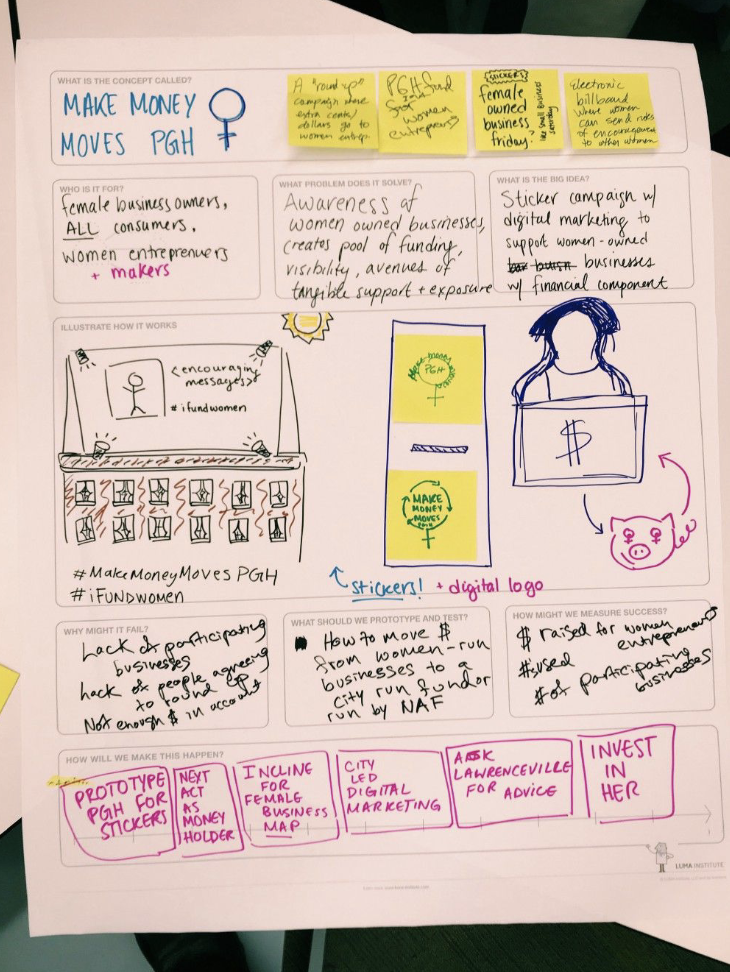 WHAT IS THE CONCEPT CALLED?
MAKE MONEY
MOVES PGH
A "round up"
campaign where
extra cents/
dollars go to
women entrep.
PGH fund
for
women
entrepreneurs
STICKERS
female
owned
business
friday.
like Small Business
Saturday
Electronic
billboard
where women
can send notes
of encouragement
to other women
WHO IS IT FOR?
female business owners,
ALL consumers.
women entreprenuers
+ makers
WHAT PROBLEM DOES IT SOLVE?
Awareness of
women owned businesses,
creates pool of funding,
visibility, avenues of
tangible support + exposure
WHAT IS THE BIG IDEA?
Sticker campaign w/
digital marketing to
support women-owned
businesses
w/ financial component
ILLUSTRATE HOW IT WORKS
<encouraging
messages>
#ifundwomen
#MakeMoneyMovesPGH
#iFUNDWOMEN
MAKE MONEY MOVES
PGH
MAKE
MONEY
MOVES
PGH
stickers! + digital logo
$
WHY MIGHT IT FAIL?
Lack of participating
businesses
Lack of people agreeing
to round up
Not enough $ in account
WHAT SHOULD WE PROTOTYPE AND TEST?
How to move $
from women-run
businesses to a
city run fund or
run by NAF
HOW MIGHT WE MEASURE SUCCESS?
$ raised for women
entrepreneurs
#s used
# of participating
businesses
HOW WILL WE MAKE THIS HAPPEN?
PROTOTYPE
PGH FOR
STICKERS
NEXT
ACT
AS
MONEY
HOLDER
INCLINE
FOR
FEMALE
BUSINESS
MAP
CITY
LED
DIGITAL
MARKETING
ASK
LAWRENCEVILLE
FOR ADVICE
INVEST
IN
HER
LUMA INSTITUTE